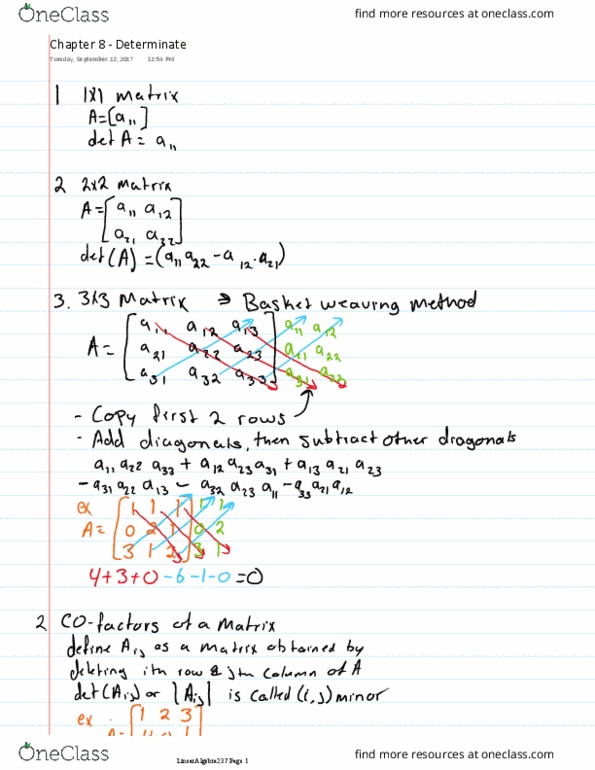 OneClass
find more resources at oneclass.com
Chapter 8 - Determinate
Tuesday, September 12, 2017 12:54 PM
1 1x1 matrix
A=[a₁₁]
det A = a₁₁
2 2x2 matrix
A=[a₁₁ a₁₂
a₂₁ a₂₂]
det(A) = (a₁₁a₂₂ - a₁₂·a₂₁)
3. 3x3 Matrix → Basket weaving method
a₁₁ a₁₂ a₁₃ a₁₁ a₁₂
A = a₂₁ a₂₂ a₂₃ a₂₁ a₂₂
a₃₁ a₃₂ a₃₃ a₃₁ a₃₂
- Copy first 2 rows
- Add diagonals, then subtract other diagonals
a₁₁ a₂₂ a₃₃ + a₁₂ a₂₃ a₃₁ + a₁₃ a₂₁ a₂₃
- a₃₁ a₂₂ a₁₃ - a₃₂ a₂₃ a₁₁ - a₃₃ a₂₁ a₁₂
ex 1 1 1 1 1
A = 0 2 1 0 2
3 1 2 3 1
4+3+0-6-1-0=0
2 CO-factors of a Matrix
define Aᵢⱼ as a matrix obtained by
deleting ith row & jth column of A
det(Aᵢⱼ) or |Aᵢⱼ| is called (i,j) minor
ex. 1 2 3
OneClass
LinearAlgebra237 Page 1
find more resources at oneclass.com